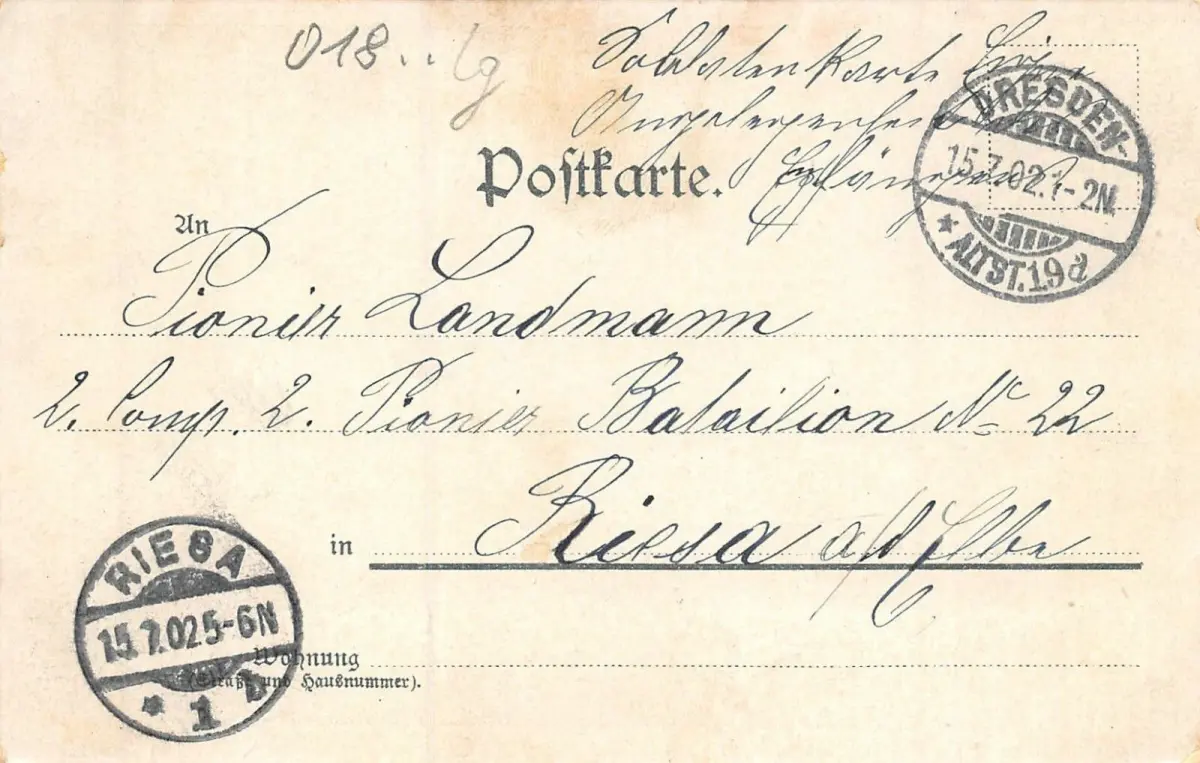 018..
Soldatenkarte Eigene
Angelegenheit des
Postkarte. Empfängers
DRESDEN-
15.7.02.1-2N.
* ALTST.19d
An
Pionier Landmann
2. Comp. 2. Pionier Batailion No 22
in Riesa a/d Elbe
RIESA
15.7.02 5-6N
* 1 b
Wohnung
(Straße und Hausnummer).